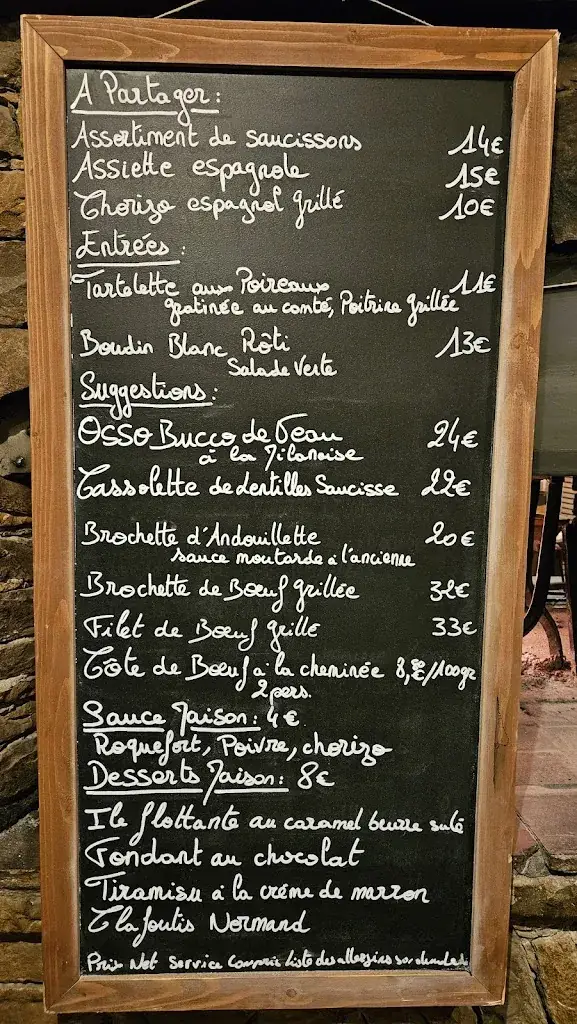 A Partager :
Assortiment de saucissons 14€
Assiette espagnole 15€
Chorizo espagnol grillé 10€
Entrées :
Tartelette aux Poireaux 11€
gratinée au comté, Poitrine grillée
Boudin Blanc Rôti 13€
Salade Verte
Suggestions :
Osso Bucco de Veau 24€
à la Milanaise
Cassolette de lentilles Saucisse 22€
Brochette d'Andouillette 20€
sauce moutarde à l'ancienne
Brochette de Bœuf grillée 32€
Filet de Bœuf grillé 33€
Côte de Bœuf à la cheminée 8,€/100gr
2 pers.
Sauce Maison : 4€
Roquefort, Poivre, chorizo
Desserts Maison : 8€
Ile flottante au caramel beurre salé
Fondant au chocolat
Tiramisu à la crème de marron
Clafoutis Normand
Prix Net Service Compris liste des allergins sur